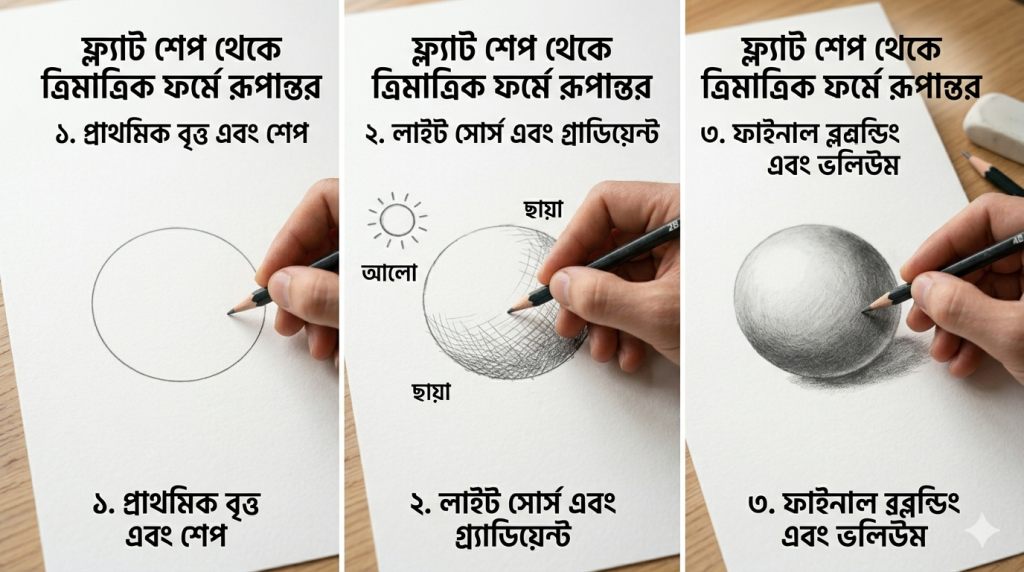 ফ্ল্যাট শেপ থেকে
ত্রিমাত্রিক ফর্মে রূপান্তর
১. প্রাথমিক বৃত্ত এবং শেপ
১. প্রাথমিক বৃত্ত
এবং শেপ
ফ্ল্যাট শেপ থেকে
ত্রিমাত্রিক ফর্মে রূপান্তর
২. লাইট সোর্স এবং গ্রাডিয়েন্ট
ছায়া
আলো
2B
ছায়া
২. লাইট সোর্স এবং
গ্র্যাডিয়েন্ট
ফ্ল্যাট শেপ থেকে
ত্রিমাত্রিক ফর্মে রূপান্তর
৩. ফাইনাল
এবং ভলিউম
4B
৩. ফাইনাল
এবং ভলিউম